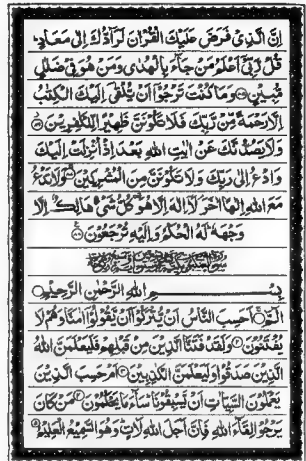 اِنَّ الَّذِیْ فَرَضَ عَلَیْكَ الْقُرْاٰنَ لَرَآدُّكَ اِلٰی مَعَادٍؕ
قُلْ رَّبِّیْۤ اَعْلَمُ مَنْ جَآءَ بِالْهُدٰی وَمَنْ هُوَ فِیْ ضَلٰلٍ
مُّبِیْنٍ۝ وَمَا كُنْتَ تَرْجُوْۤا اَنْ یُّلْقٰۤی اِلَیْكَ الْكِتٰبُ
اِلَّا رَحْمَةً مِّنْ رَّبِّكَ فَلَا تَكُوْنَنَّ ظَهِیْرًا لِّلْكٰفِرِیْنَ۝
وَلَا یَصُدُّنَّكَ عَنْ اٰیٰتِ اللهِ بَعْدَ اِذْ اُنْزِلَتْ اِلَیْكَ
وَادْعُ اِلٰی رَبِّكَ وَلَا تَكُوْنَنَّ مِنَ الْمُشْرِكِیْنَ۝ وَلَا تَدْعُ
مَعَ اللهِ اِلٰهًا اٰخَرَ لَاۤ اِلٰهَ اِلَّا هُوَ كُلُّ شَیْءٍ هَالِكٌ اِلَّا
وَجْهَهٗ لَهُ الْحُكْمُ وَاِلَیْهِ تُرْجَعُوْنَ۝
بِسْمِ اللهِ الرَّحْمٰنِ الرَّحِیْمِ
الٓمّٓ۝ اَحَسِبَ النَّاسُ اَنْ یُّتْرَكُوْۤا اَنْ یَّقُوْلُوْۤا اٰمَنَّا وَهُمْ لَا
یُفْتَنُوْنَ۝ وَلَقَدْ فَتَنَّا الَّذِیْنَ مِنْ قَبْلِهِمْ فَلَیَعْلَمَنَّ اللهُ
الَّذِیْنَ صَدَقُوْا وَلَیَعْلَمَنَّ الْكٰذِبِیْنَ۝ اَمْ حَسِبَ الَّذِیْنَ
یَعْمَلُوْنَ السَّیِّاٰتِ اَنْ یَّسْبِقُوْنَا سَآءَ مَا یَحْكُمُوْنَ۝ مَنْ كَانَ
یَرْجُوْا لِقَآءَ اللهِ فَاِنَّ اَجَلَ اللهِ لَاٰتٍ وَهُوَ السَّمِیْعُ الْعَلِیْمُ۝